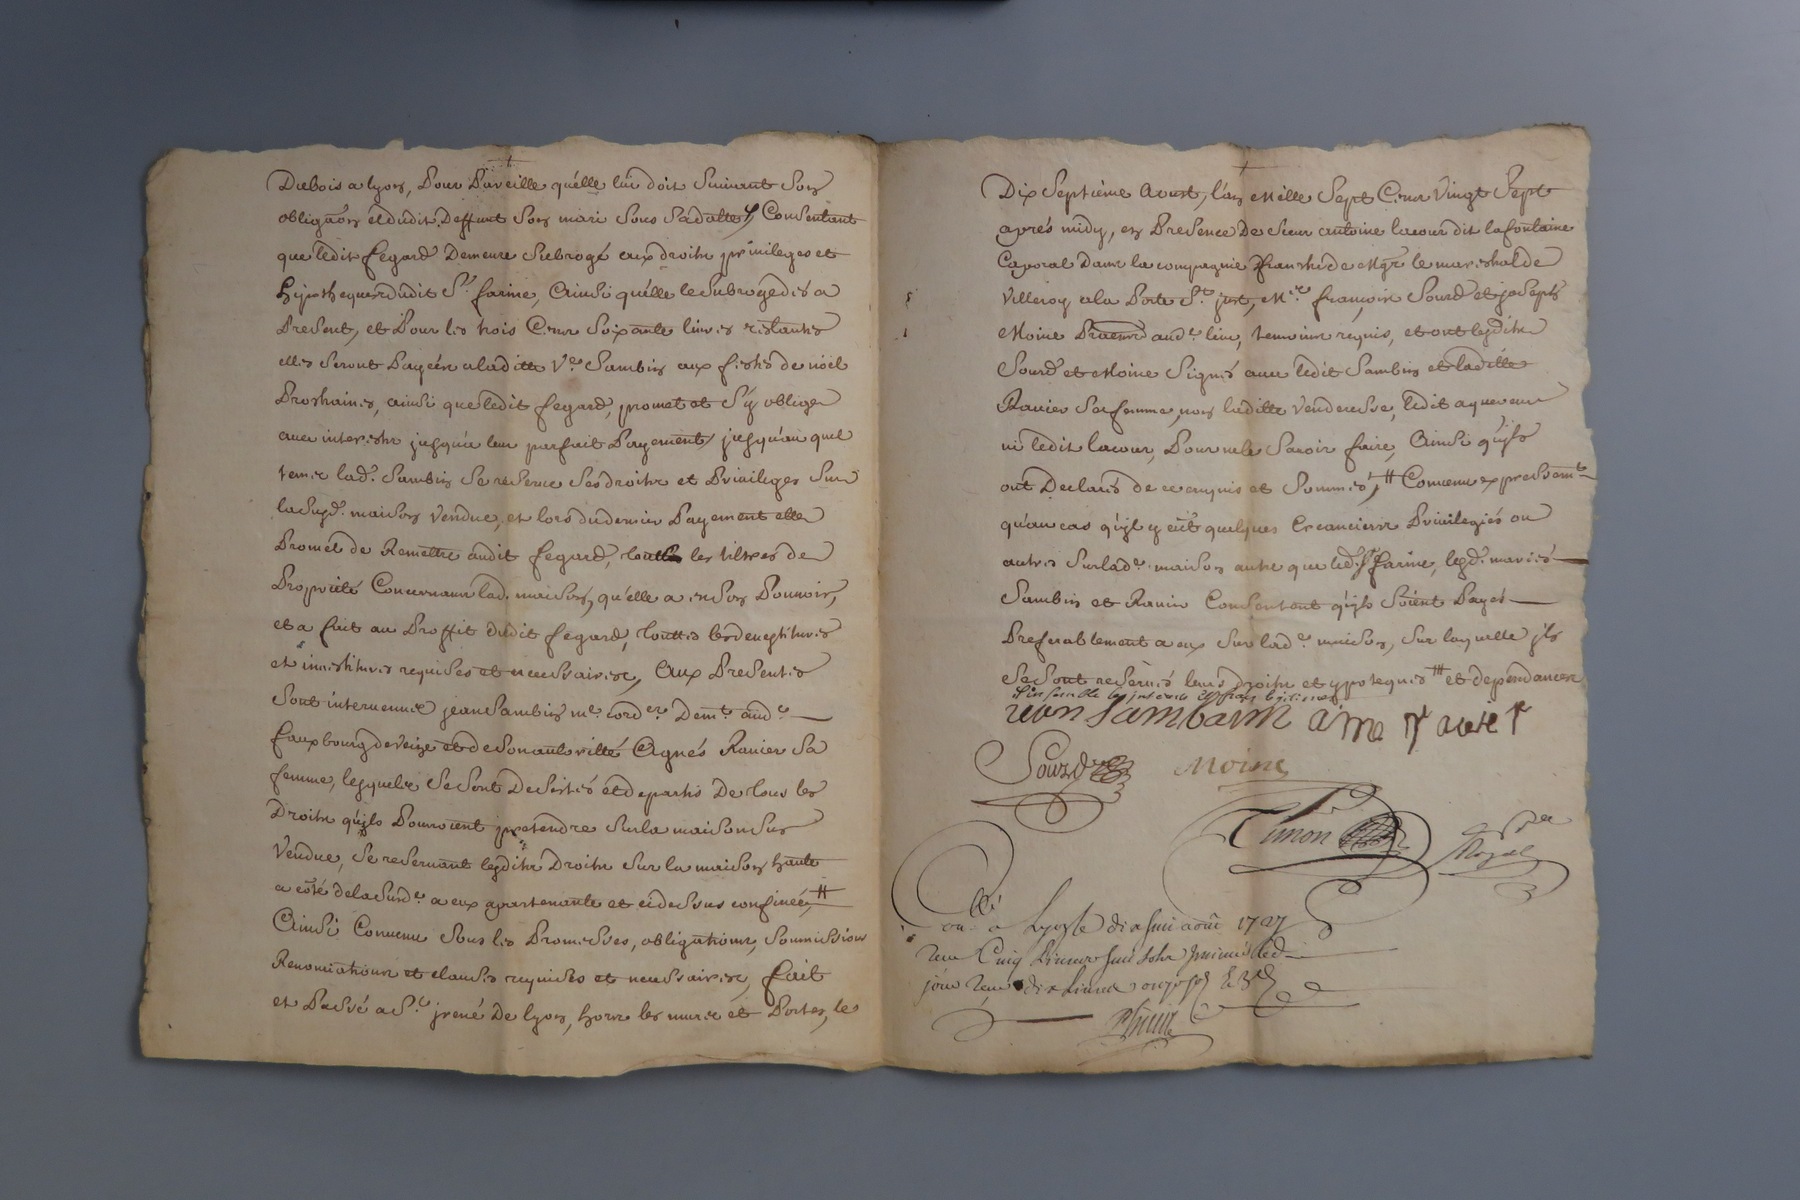 Dubois a lyon, Pour Pareille quélle lui doit Suivant Son
obligaōn et dudit Deffunt Son mari Sous Sa datte, Consentant
que ledit fegard Demeure Subrogé aux droits privileges et
hypotheques dudit Sr. farine, Ainsi quélle le Subroge dés a
Present, et Pour les trois Cens Soixante livres restantes
elles Seront Payées a laditte Ve. Sambin aux festes de nöel
Prochaines, ainsi que ledit fegard, promet et Sÿ oblige
avec interests jusqu'a leur parfait Payement, jusqu'au quel
tems lade. Sambin Se reserve Ses droits et Privileges Sur
la Susd. maison Vendue, et lors du dernier Payement elle
Promet de Remettre audit fegard, touts les tiltres de
Proprieté Concernant lad. maison, qu'elle a en Son Pouvoir,
et a fait au Proffit dudit fegard, touttes les devestitures
et investitures requises et necessaires, Aux Presentes
Sont intervenus jean Sambin me. cordr. Demt. aude.
fauxbourg de Veize et de Son authorité Agnés Ravier Sa
femme, lesquels Se Sont Desistés et departis De tous les
Droits qu'ils Pourroient pretendre Sur la maison Sus
Vendue, Se reservant lesdits Droits Sur la maison haute
a côté de la Susde. a eux apartenante et ci dessus confinée,
Ainsi Convenu Sous les Promesses, obligations, Soumissions
Renonciations et clauses requises et necessaires, fait
et Passé a St. jrené De lyon, hors les murs et Portes, le
Dix Septième Aoust, l'an Mille Sept Cens Vingt Sept
aprés midy, en Presence De Sieur antoine lacour dit la fontaine
Caporal Dans la compagnie franche de Mgr. le mareshal de
Villeroy a la Porte St. just, Mre. françois Sourd et joseph
Moine aude. lieu, temoins requis, et ont lesdits
Sourd et Moine Signés avec ledit Sambin et laditte
Ravier Sa femme, non laditte Venderesse, ledit aquereur
ni ledit lacour, Pour ne le Savoir faire, Ainsi qu'ils
ont Declarés de ce enquis et Sommés, Convenu expressemt.
qu'au cas qu'il y eût quelques Creanciers Privilegiés ou
autres Sur lade. maison autre que led. Sr. farine, lesd. mariés
Sambin et Ravier Consentent qu'ils Soient Payés
Preferablement a eux Sur lade. maison, Sur laquelle ils
Se Sont reservés leurs droits et ypoteques et dependances
jean Sambain
Sourd Moine
Timon Royal
a Lyon le dix huit août 1727